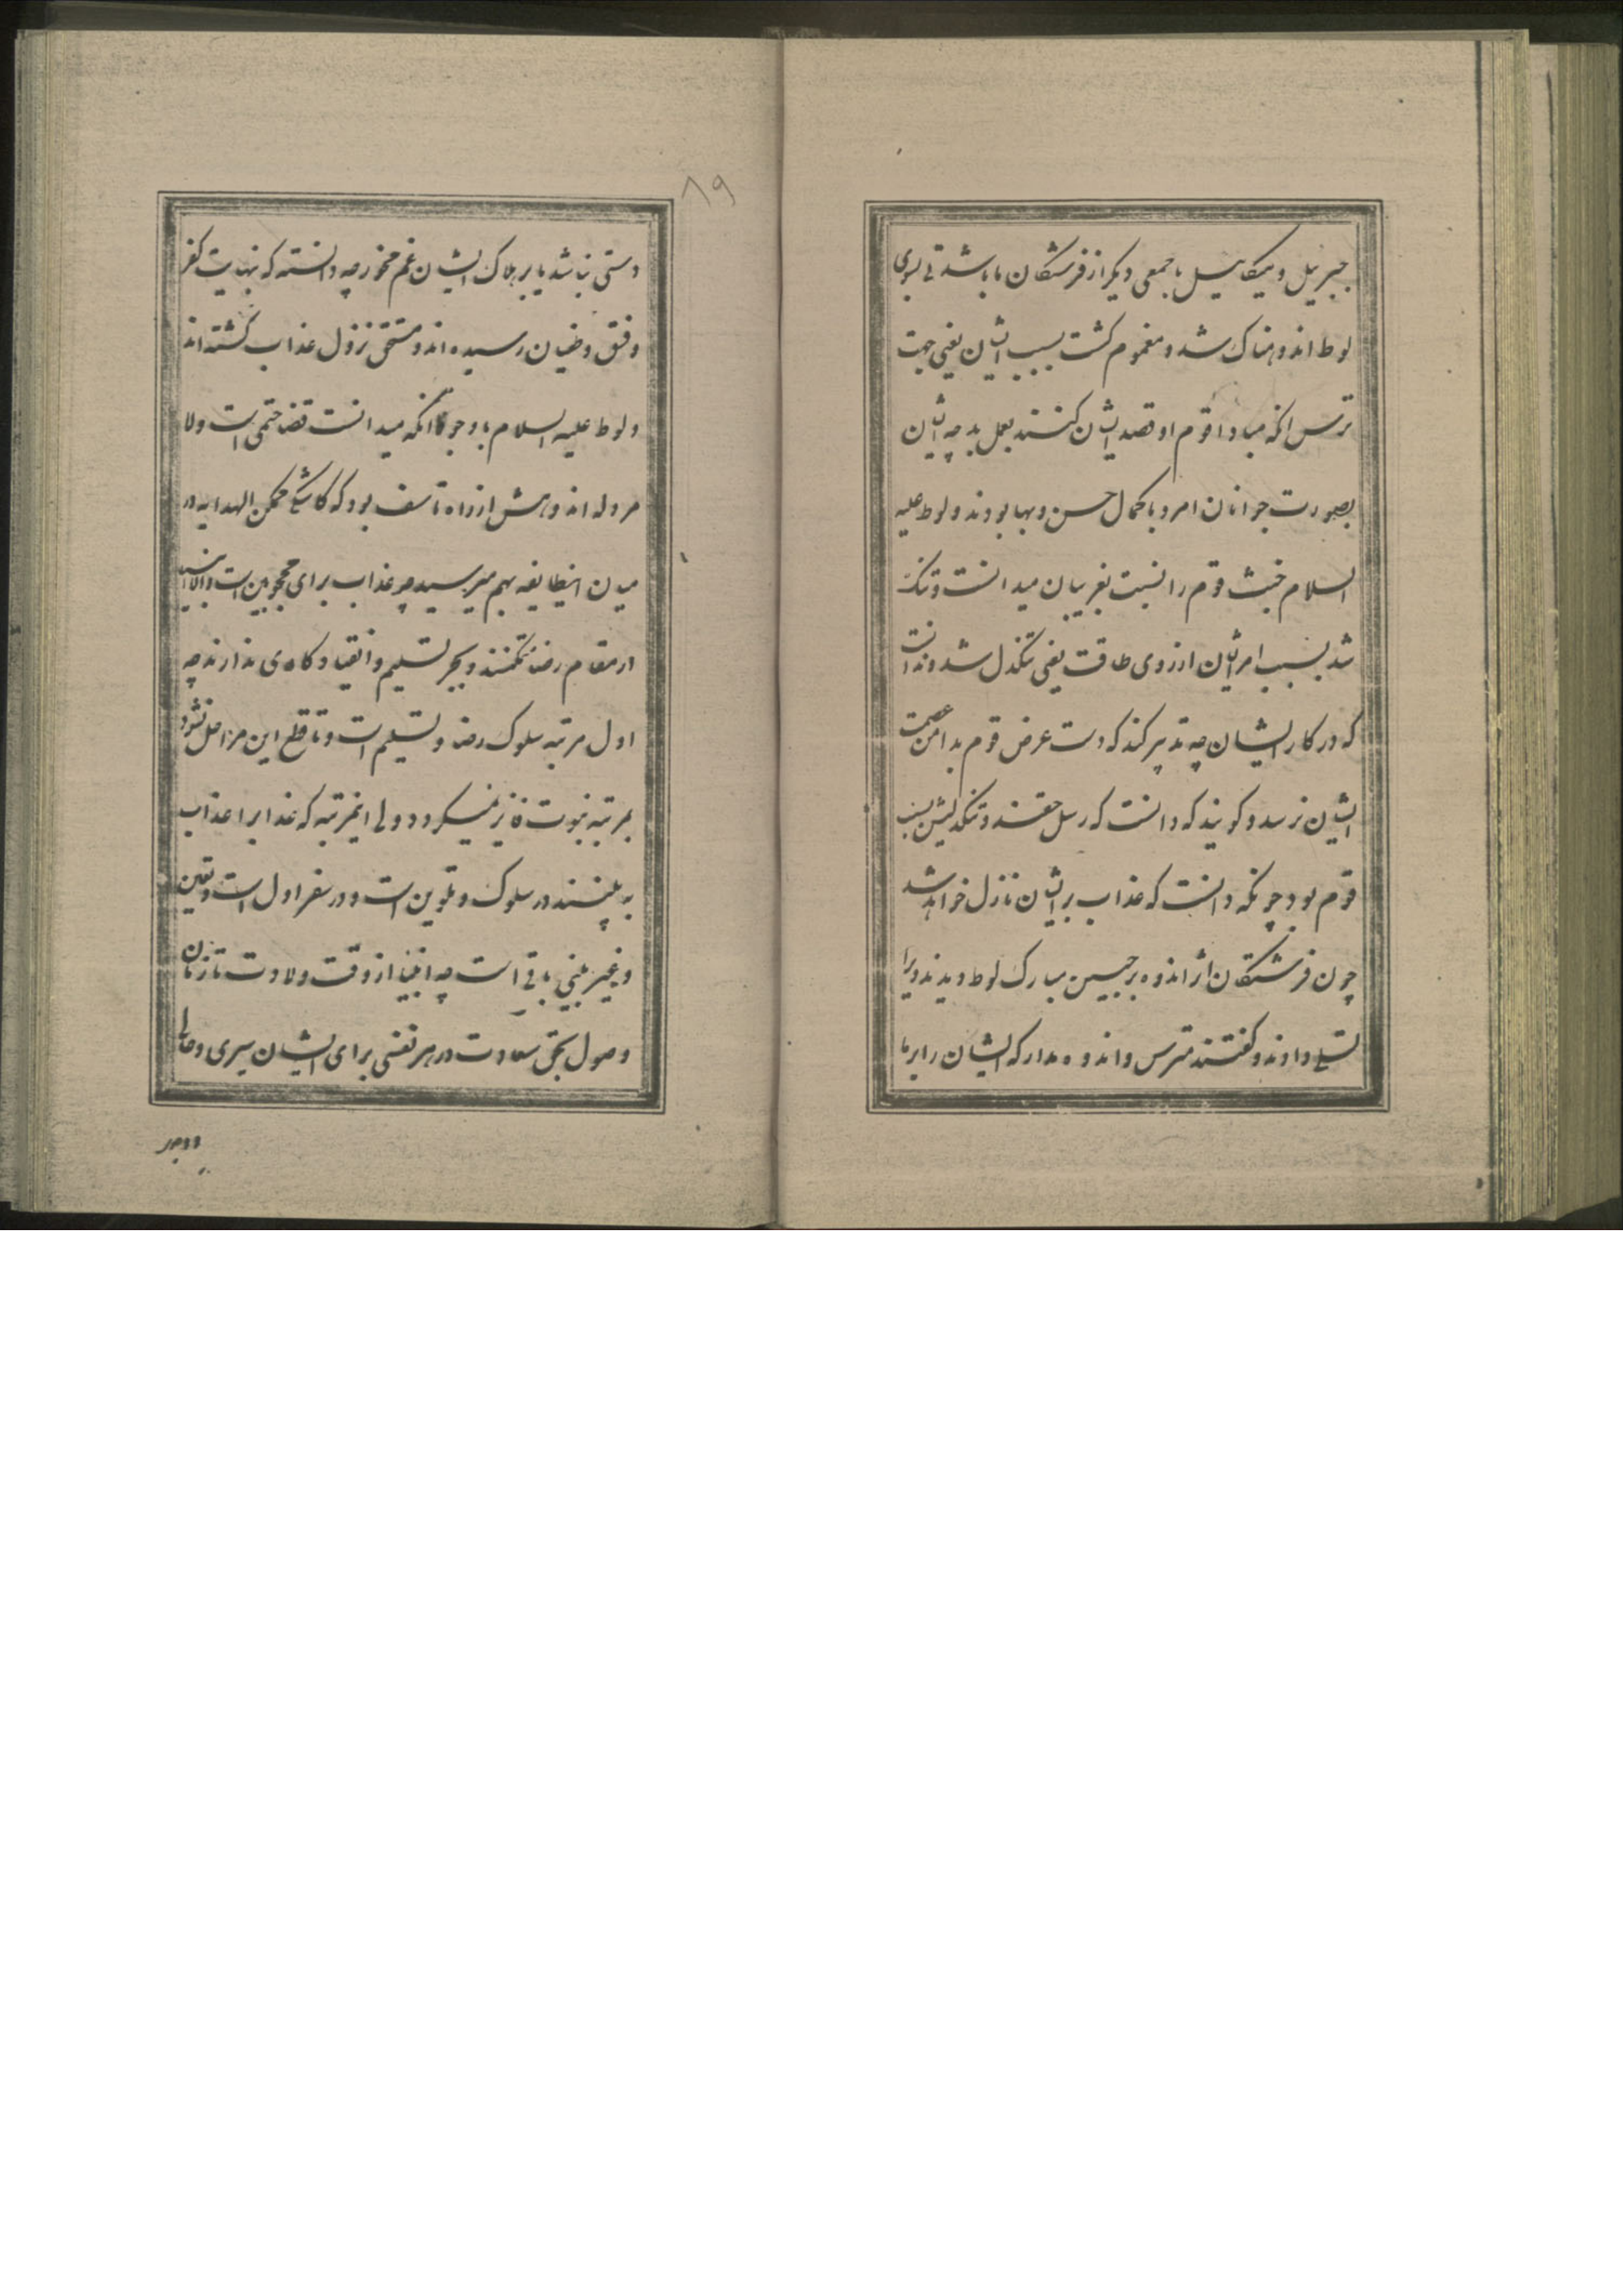 جبرئیل و میکائیل با جمعی دیگر از فرشتگان ما باشد تی بسوی
لوط اندوهناک شد و مغموم کشت بسبب ایشان یعنی جهت
ترس انکه مبادا قوم او قصد ایشان کنند بعمل بد چه ایشان
بصورت جوانان امرد با کمال حسن و بها بودند و لوط علیه
السلام خبث قوم را نسبت بغریبان میدانست و تنک
شد بسبب امر ایشان ارزوی طاقت یعنی تنکدل شد و ندانست
که در کار ایشان چه تدبیر کند که دست عرض قوم بدامن عصمت
ایشان نرسد و کویند که دانست که رسل حقند و تنکدلیش بسبب
قوم بود چونکه دانست که عذاب بر ایشان نازل خواهد شد
چون فرشتکان اثر اندوه بر جبین مبارک لوط دیدند ویرا
تسلی دادند و کفتند مترس و اندوه مدار که ایشان را بر ما
۸۹
دستی نباشد یا بر هلاک ایشان غم مخور چه دانسته که نهایت کفر
و فسق و طغیان رسیده اند و مستحق نزول عذاب کشته اند
و لوط علیه السلام با وجود انکه میدانست قضا حتمی است ولا
مرد له اندوهش از راه تاسف بود که کاشکی ممکن الهدایه در
میان اینطایفه بهم میرسید چه عذاب برای محجوبین است و الا انبیا
در مقام رضا متمکنند و بجز تسلیم و انقیاد کاری ندارند چه
اول مرتبه سلوک رضا و تسلیم است و تا قطع این مراحل نشود
بمرتبه نبوت فائز نمیکردد ولی اینمرتبه که عذابرا عذاب
به بینند در سلوک و تلوین است و در سفر اول است و تعین
و غیر بینی باقی است چه انبیا از وقت ولادت تا زمان
وصول بحق سعادت در هر نفسی برای ایشان سیری و حالی